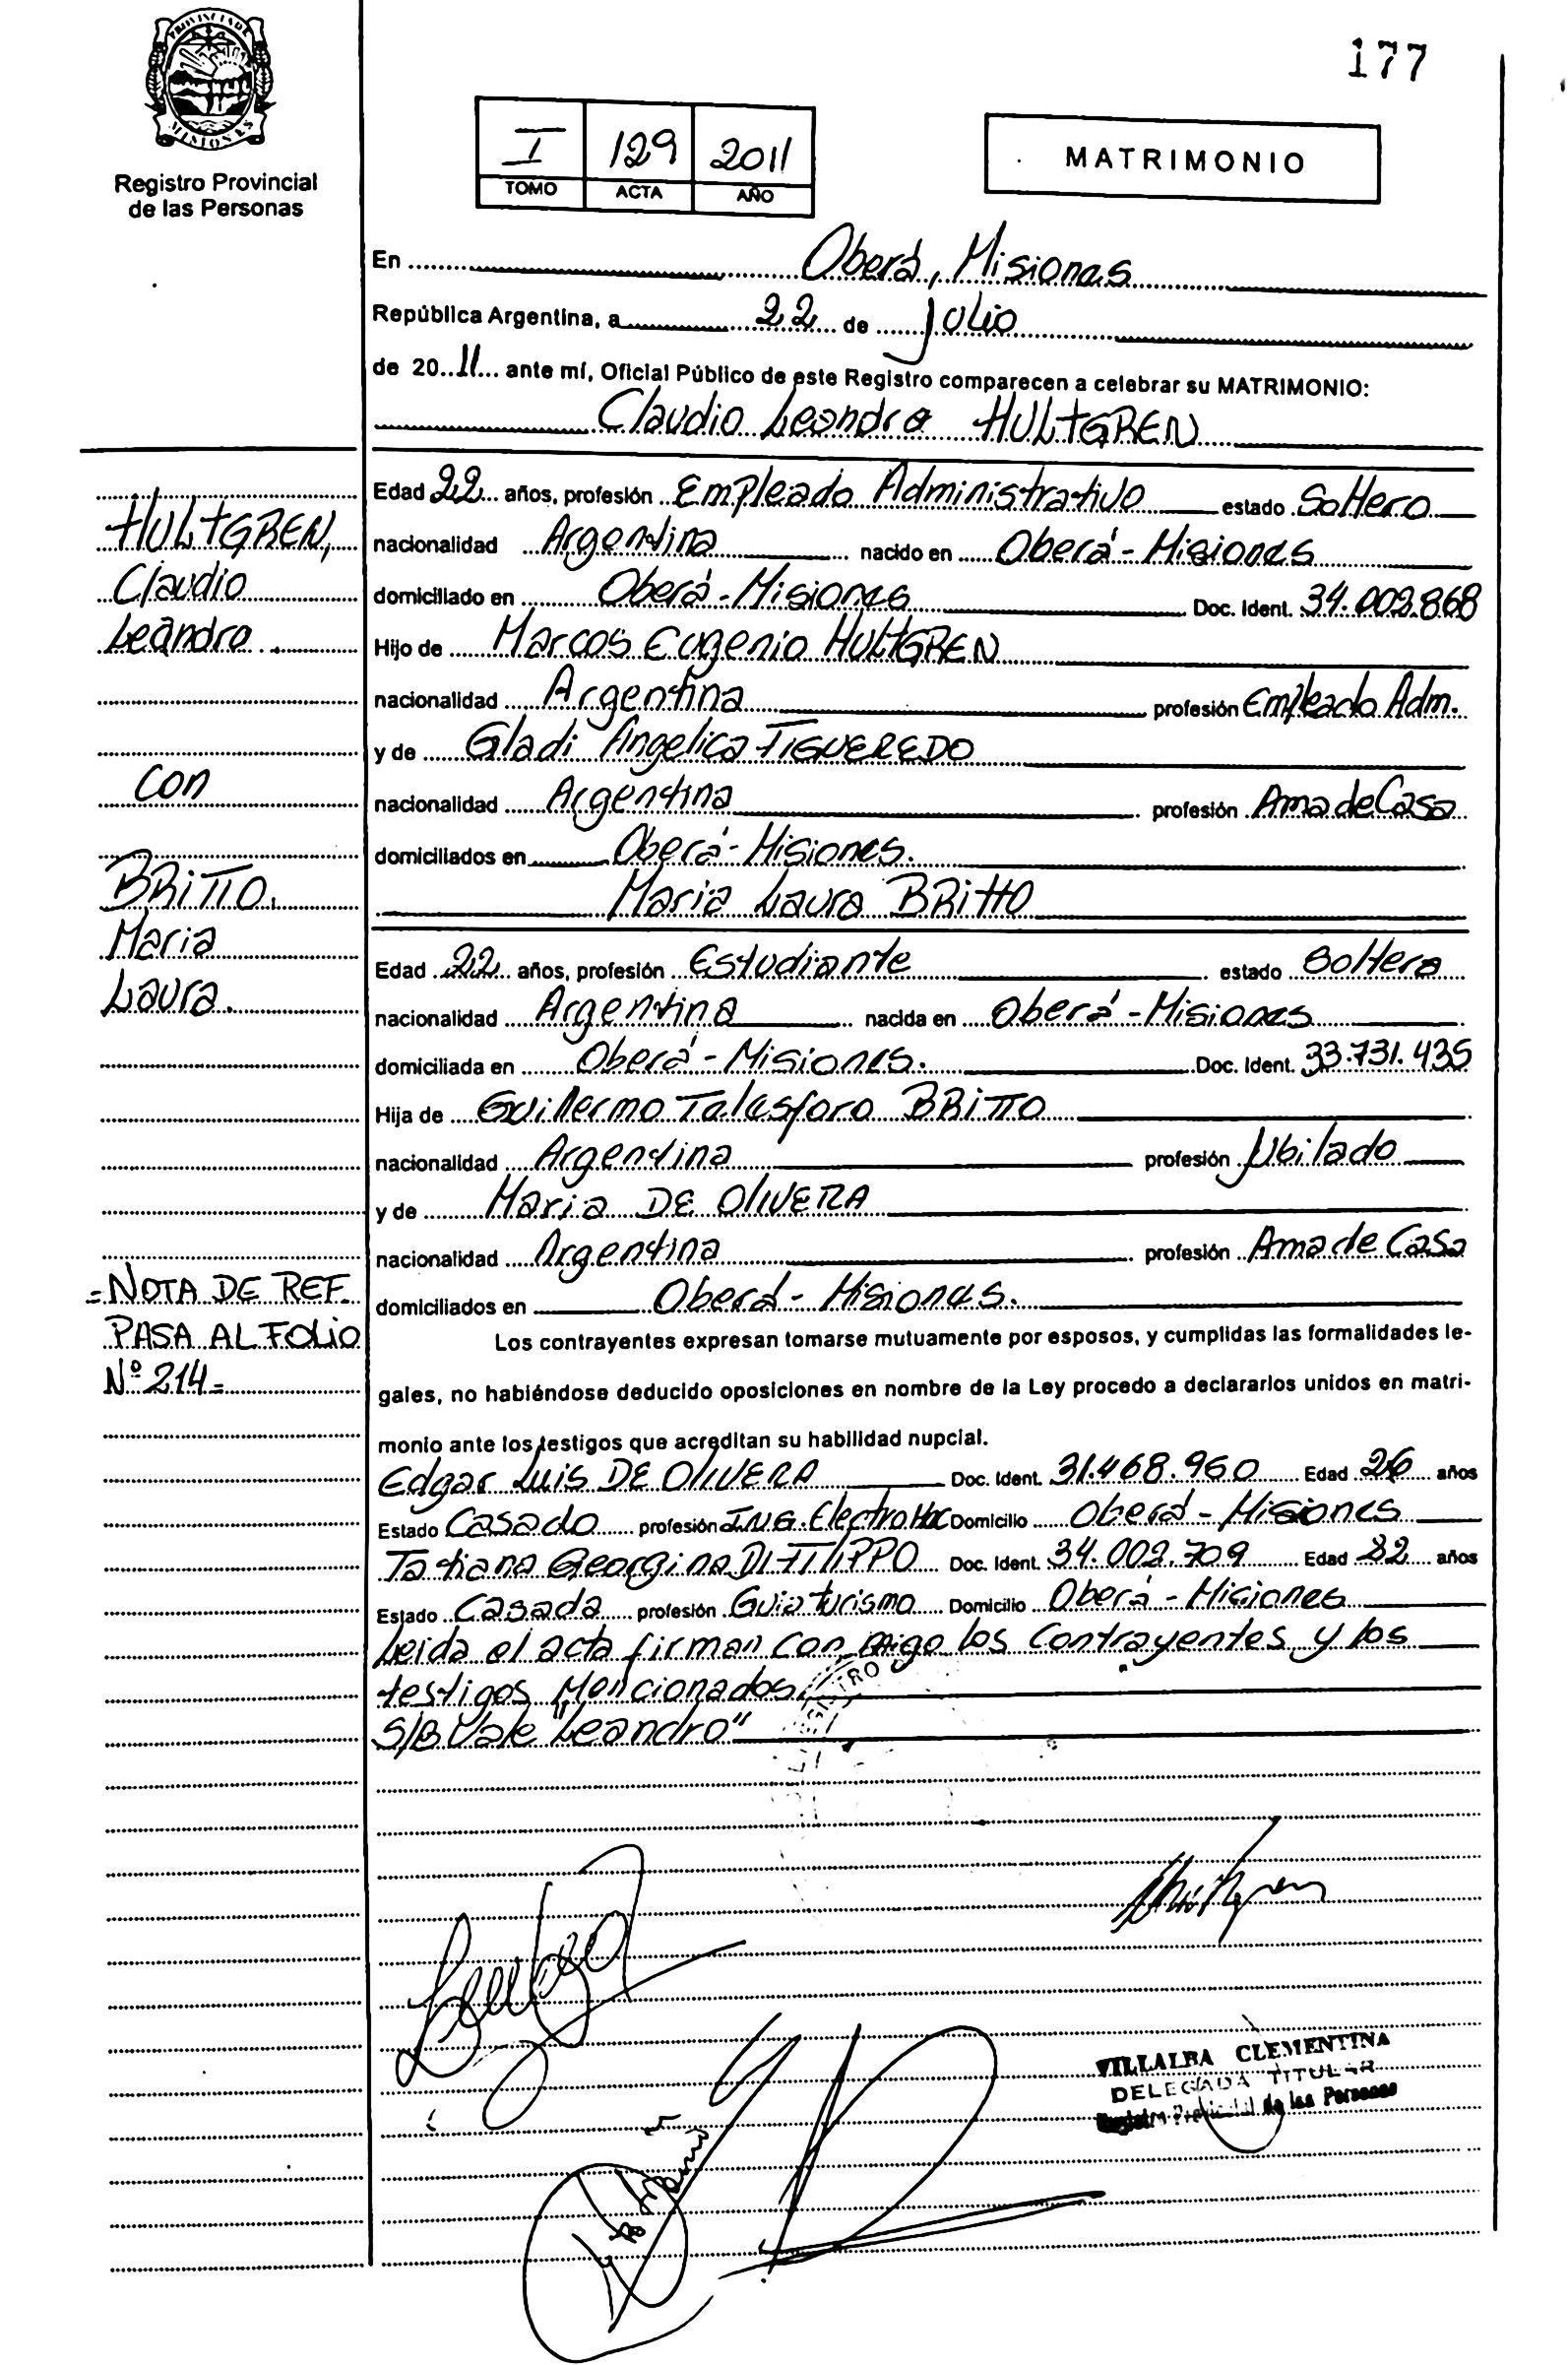 177
PROVINCIA DE
MISIONES
Registro Provincial
de las Personas
I 129 2011
TOMO ACTA AÑO
MATRIMONIO
En Oberá, Misiones
República Argentina, a 22 de Julio
de 2011 ante mí, Oficial Público de este Registro comparecen a celebrar su MATRIMONIO:
Claudio Leandro HULTGREN
Edad 22 años, profesión Empleado Administrativo estado Soltero
nacionalidad Argentina nacido en Oberá - Misiones
domiciliado en Oberá - Misiones Doc. Ident. 34.002.868
Hijo de Marcos Eugenio HULTGREN
nacionalidad Argentina profesión Empleado Adm.
y de Gladi Angelica FIGUEREDO
nacionalidad Argentina profesión Ama de Casa
domiciliados en Oberá - Misiones.
Maria Laura BRITTO
Edad 22 años, profesión Estudiante estado Soltera
nacionalidad Argentina nacida en Oberá - Misiones
domiciliada en Oberá - Misiones. Doc. Ident. 33.731.435
Hija de Guillermo Telesforo BRITTO
nacionalidad Argentina profesión Jubilado
y de Maria DE OLIVERA
nacionalidad Argentina profesión Ama de Casa
domiciliados en Oberá - Misiones.
Los contrayentes expresan tomarse mutuamente por esposos, y cumplidas las formalidades le-
gales, no habiéndose deducido oposiciones en nombre de la Ley procedo a declararlos unidos en matri-
monio ante los testigos que acreditan su habilidad nupcial.
Edgar Luis DE OLIVERA Doc. Ident. 31.468.960 Edad 26 años
Estado Casado profesión ING. Electro Mec Domicilio Oberá - Misiones
Tatiana Georgina DI FILIPPO Doc. Ident. 34.002.709 Edad 22 años
Estado Casada profesión Guia turismo Domicilio Oberá - Misiones
Leida el acta firman conmigo los Contrayentes y los
testigos Mencionados.
S/B Vale "Leandro"
HULTGREN,
Claudio
Leandro.
con
BRITTO.
Maria
Laura.
=NOTA DE REF.
PASA AL FOLIO
Nº 214=
VILLALBA CLEMENTINA
DELEGADA TITULAR
Registro Provincial de las Personas